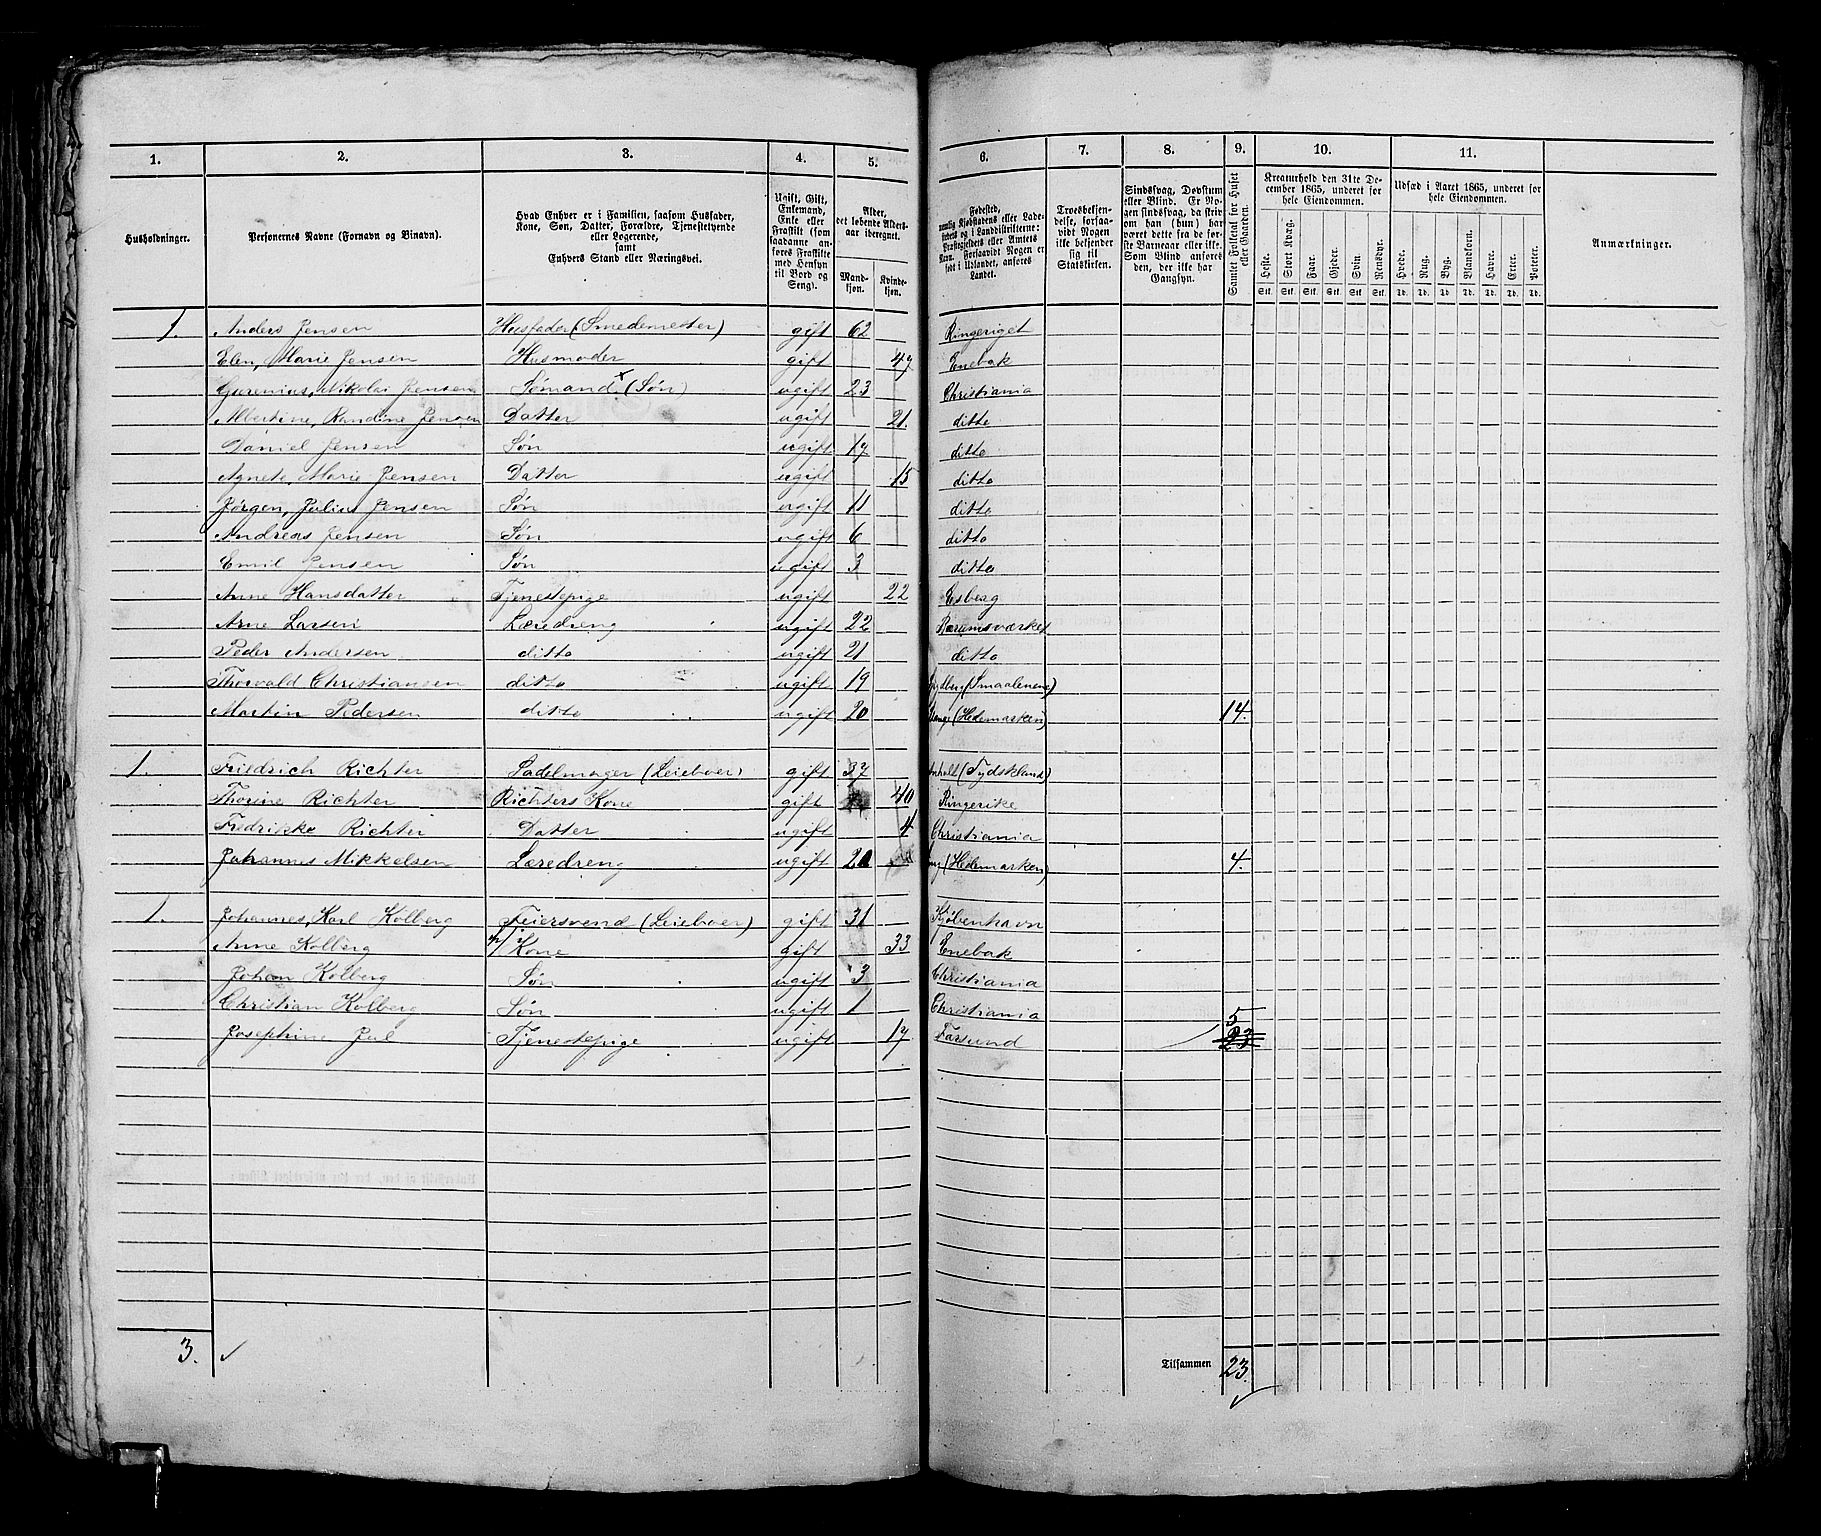 1. 2. 3. 4. 5. 6. 7. 8. 9. 10. 11.
Husholdninger.
Personernes Navne (Fornavn og Binavn).
Hvad Enhver er i Familien, saasom Husfader, Kone, Søn, Datter, Forældre, Tjenestetyende eller Logerende, samt Enhvers Stand eller Næringsvei.
Ugift, Gift, Enkemand, Enke eller Fraskilt (som saadanne anføres Fraskilte med Hensyn til Bord og Seng).
Alder, det løbende Alders-aar iberegnet.
Mand-kjøn. Kvinde-kjøn.
Fødested,
Troesbekjendelse, forsaavidt Nogen ikke bekjender sig til Statskirken.
Sindssvag, Døvstum eller Blind. Er Nogen sindssvag, da skriv om han (hun) har været dette fra de første Barneaar eller ikke. Som Blind anføres den, der ikke har Gangsyn.
Samlet Folketal for Huset eller Gaarden.
Kreaturhold den 31te December 1865, underet for hele Eiendommen.
Heste. Stort Kvæg. Faar. Gjeder. Svin. Rensdyr.
Udsæd i Aaret 1865, underet for hele Eiendommen.
Hvede. Rug. Byg. Blandkorn. Havre. Erter. Poteter.
Anmærkninger.
Stk. Stk. Stk. Stk. Stk. Stk. Td. Td. Td. Td. Td. Td. Td.
1. Anders Jensen Husfader (Smedemester) gift 62 Ringeriget
Elen, Marie Jensen Husmoder gift 47 Enebak
Nikolai Jensen Sømand x (Søn) ugift 23 Christiania
Albertine, Randine Jensen Datter ugift 21. ditto
Daniel Jensen Søn ugift 17 ditto
Agnete, Marie Jensen Datter ugift 15 ditto
Jørgen, Julius Jensen Søn ugift 11 ditto
Andreas Jensen Søn ugift 6 ditto
Emil Jensen Søn ugift 3 ditto
Anne Hansdatter Tjenestepige ugift 22 Esberg
Arne Larsen Læredreng ugift 22 Bærumsværket
Peder Andersen ditto ugift 21 ditto
Thorvald Christiansen ditto ugift 19 (Smaalenene)
Martin Pedersen ditto ugift 20 (Hedemarken) 14.
1. Friedrich Richter Sadelmager (Leieboer) gift 37 Anholt (Tydskland)
Thorine Richter Richters Kone gift 40 Ringerike
Fredrikke Richter Datter ugift 4 Christiania
Johannes Mikkelsen Læredreng ugift 20 (Hedemarken) 4.
1. Johannes, Karl Kolberg Feiersvend (Leieboer) gift 31 Kjøbenhavn
Anne Kolberg Kone gift 33 Enebak
Johan Kolberg Søn ugift 3 Christiania
Christian Kolberg Søn ugift 1 Christiania
Josephine Juel Tjenestepige ugift 17 Farsund 5 23
3. Tilsammen 23.